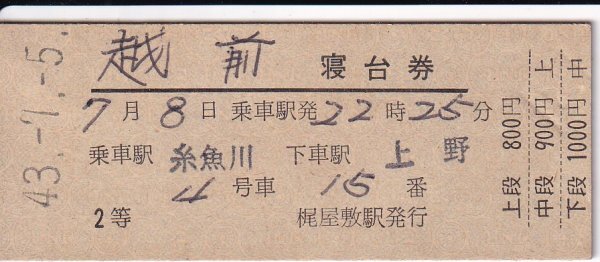 43.-7.-5.
越前 寝台券
7月8日 乗車駅発22時25分
乗車駅 糸魚川 下車駅 上野
4号車 15番
2等 梶屋敷駅発行
上段 800円 上
中段 900円 中
下段 1000円